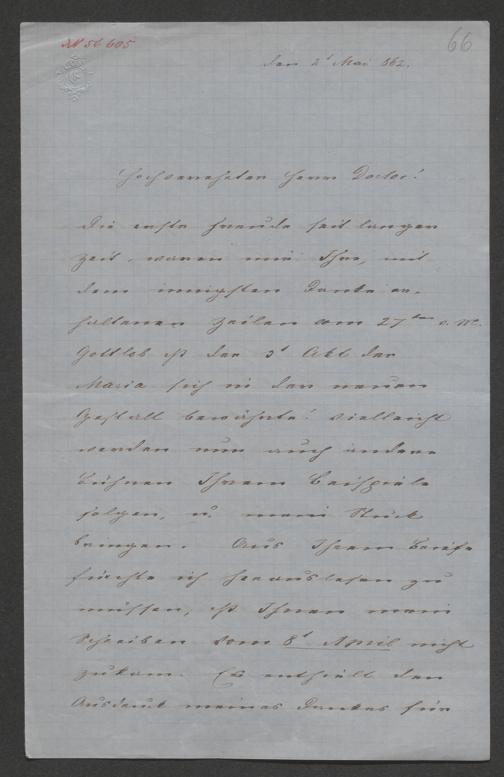 AN 56 605
66
den 2t Mai 862.
Hochverehrter Herr Doctor!
Die erste Freude seit langer
Zeit, waren mir Ihre, mit
dem innigsten Danke er-
haltenen Zeilen vom 27ten v. Mt.
Gottlob ist der 5t Akt der
Maria sich in der neuen
Gestalt bewährte! Vielleicht
werden nun auch andere
Bühnen Ihrem Beispiele
folgen, u. mein Stück
bringen. Aus Ihrem Briefe
fürchte ich herauslesen zu
müssen, ist Ihnen mein
Schreiben vom 8t April nicht
zukam. Es enthielt den
Ausdruck meines Dankes für